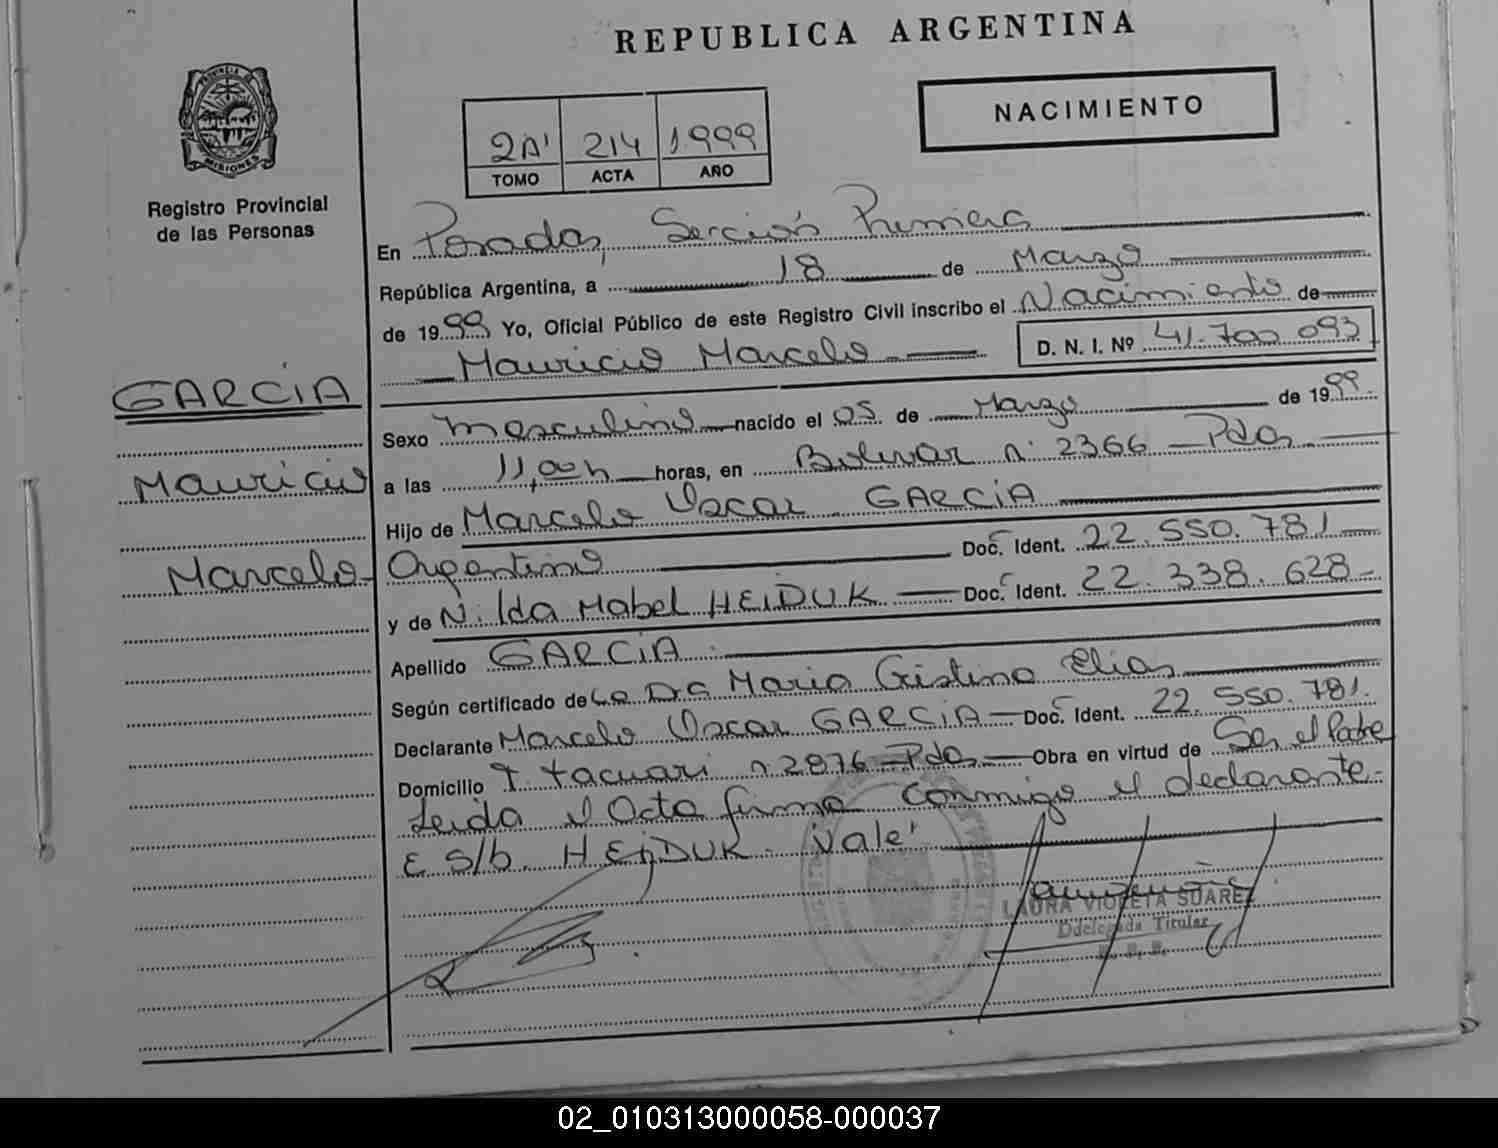 REPUBLICA ARGENTINA
NACIMIENTO
2A' 214 1999
TOMO ACTA AÑO
PROVINCIA DE MISIONES
Registro Provincial
de las Personas
En Posadas, Sección Primera
República Argentina, a 18 de Marzo
de 1999 Yo, Oficial Público de este Registro Civil inscribo el Nacimiento de
Mauricio Marcelo D. N. I. Nº 41.700.093
GARCIA
Mauricio
Marcelo
Sexo Masculino nacido el 05 de Marzo de 1999
a las 11,00h horas, en Bolivar n° 2366 - Pdas
Hijo de Marcelo Oscar GARCIA
Argentino Doc. Ident. 22.550.781
y de Nilda Mabel HEiDUK Doc. Ident. 22.338.628
Apellido GARCIA
Según certificado de La Dra Maria Cristina Elias
Declarante Marcelo Oscar GARCIA Doc. Ident. 22.550.781.
Domicilio T. tacuari n 2876 - Pdas Obra en virtud de Ser el Padre
Leida el Acta firma conmigo el declarante-
E S/b. HEijDUK. Vale'
LAURA VIOLETA SUAREZ
Ddelegada Titular
02_010313000058-000037